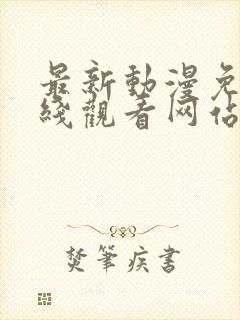 最新動漫免
綫觀看网佔
焚筆疾書